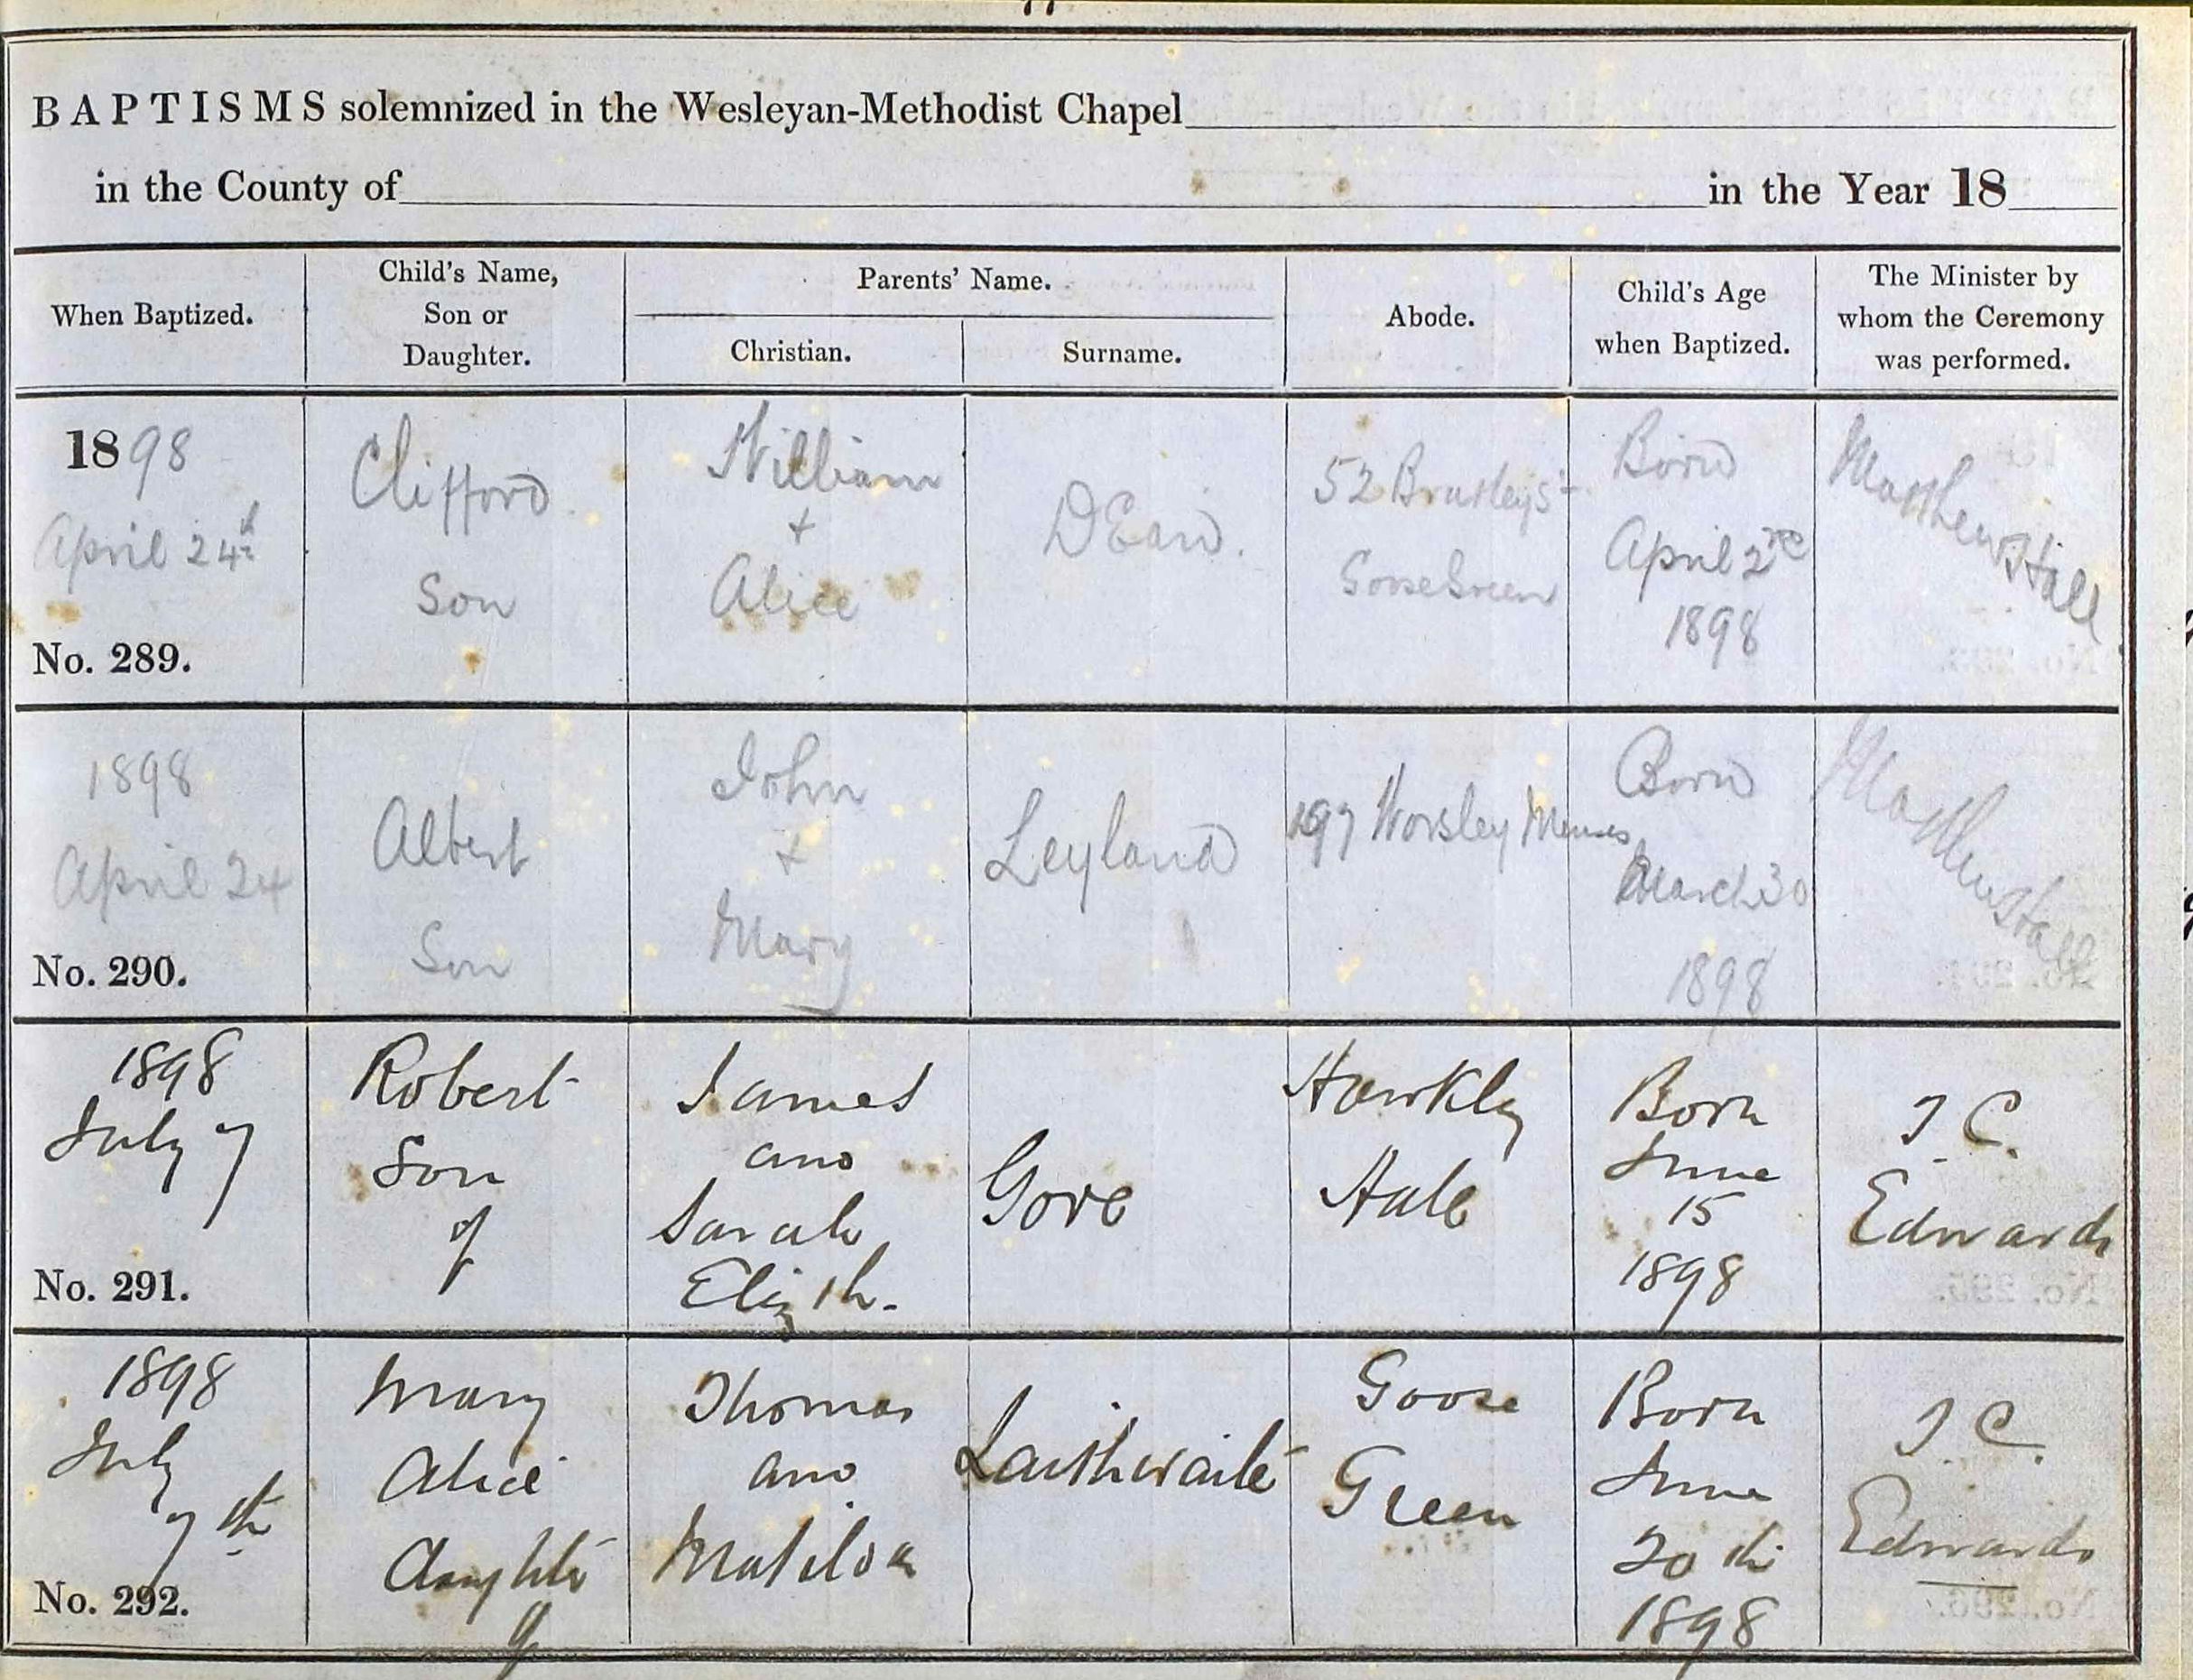 BAPTISMS solemnized in the Wesleyan-Methodist Chapel
in the County of in the Year 18
When Baptized.
Child's Name,
Son or
Daughter.
Parents' Name.
Christian.
Surname.
Abode.
Child's Age
when Baptized.
The Minister by
whom the Ceremony
was performed.
1898
April 24th
No. 289.
Clifford
Son
William
+
Alice
DEan.
52
Goose Green
Born
April 2nd
1898
Matthew Hall
1898
April 24
No. 290.
Albert
Son
John
+
Mary
Leyland
197 Worsley Mesnes
Born
March 30
1898
Matthew Hall
1898
July 7
No. 291.
Robert
Son
of
James
and
Sarah
Elizth.
Gore
Hawkley
Hall
Born
June
15
1898
T. C.
Edwards
1898
July
7th
No. 292.
Mary
Alice
daughter
of
Thomas
and
Matilda
Laithwaite
Goose
Green
Born
June
20th
1898
T. C.
Edwards